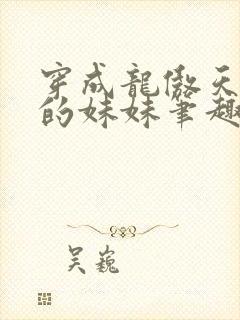 穿成龍傲天
的妹妹筆趣
吴巍